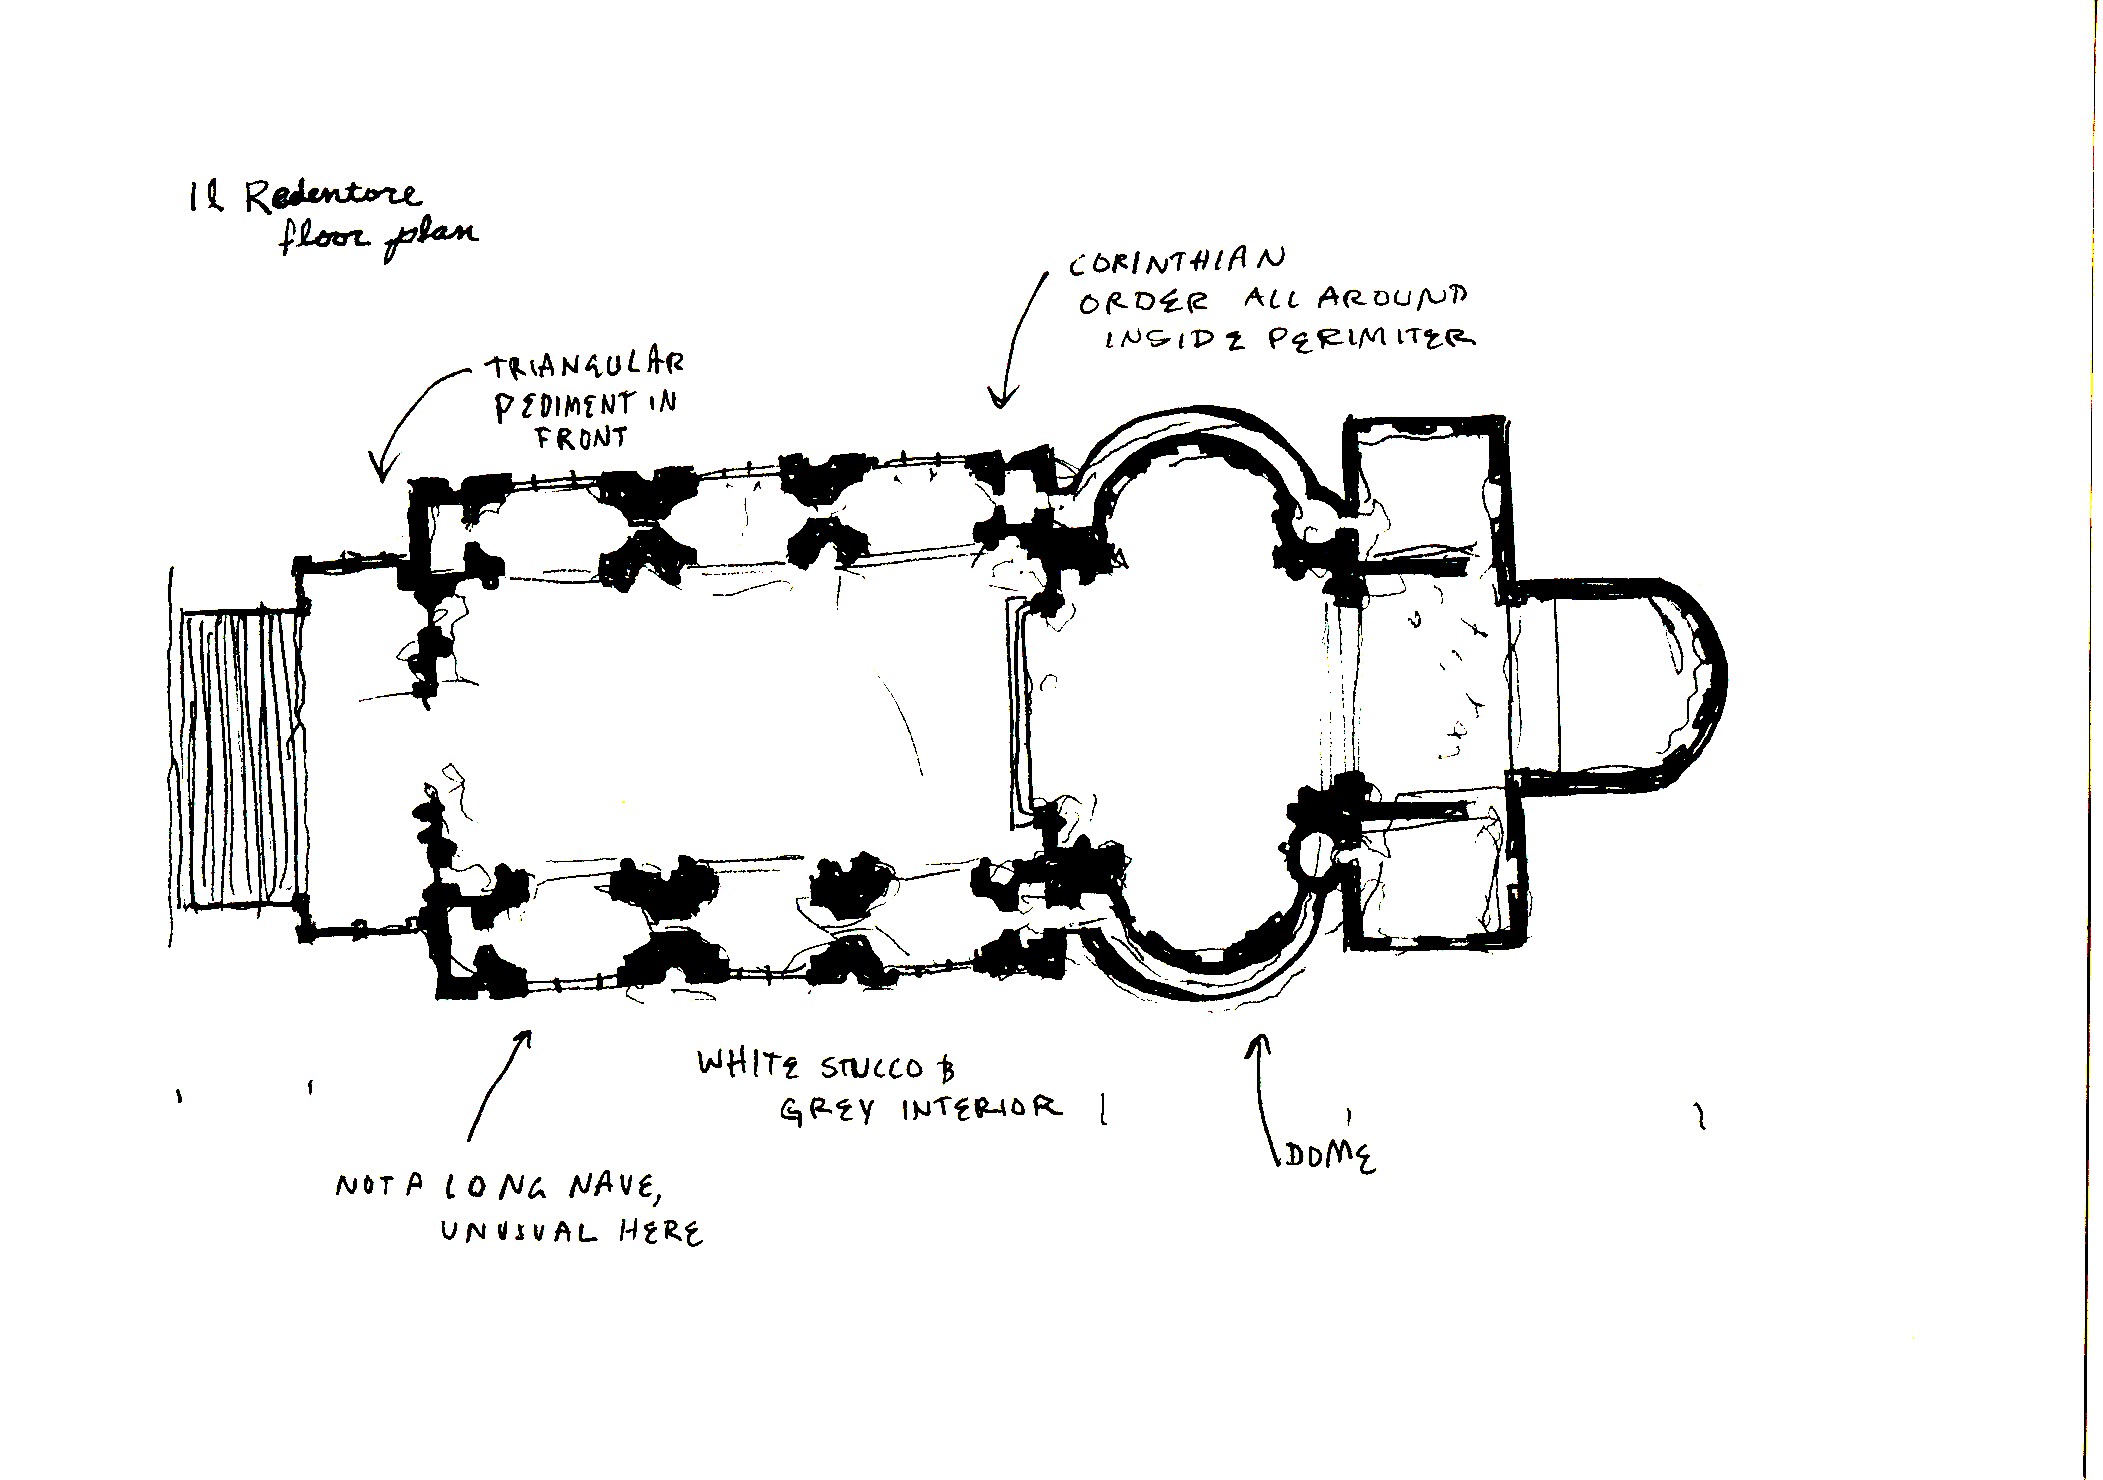 Il Redentore
floor plan
CORINTHIAN
ORDER ALL AROUND
INSIDE PERIMITER
TRIANGULAR
PEDIMENT IN
FRONT
WHITE STUCCO &
GREY INTERIOR
DOME
NOT A LONG NAVE,
UNUSUAL HERE